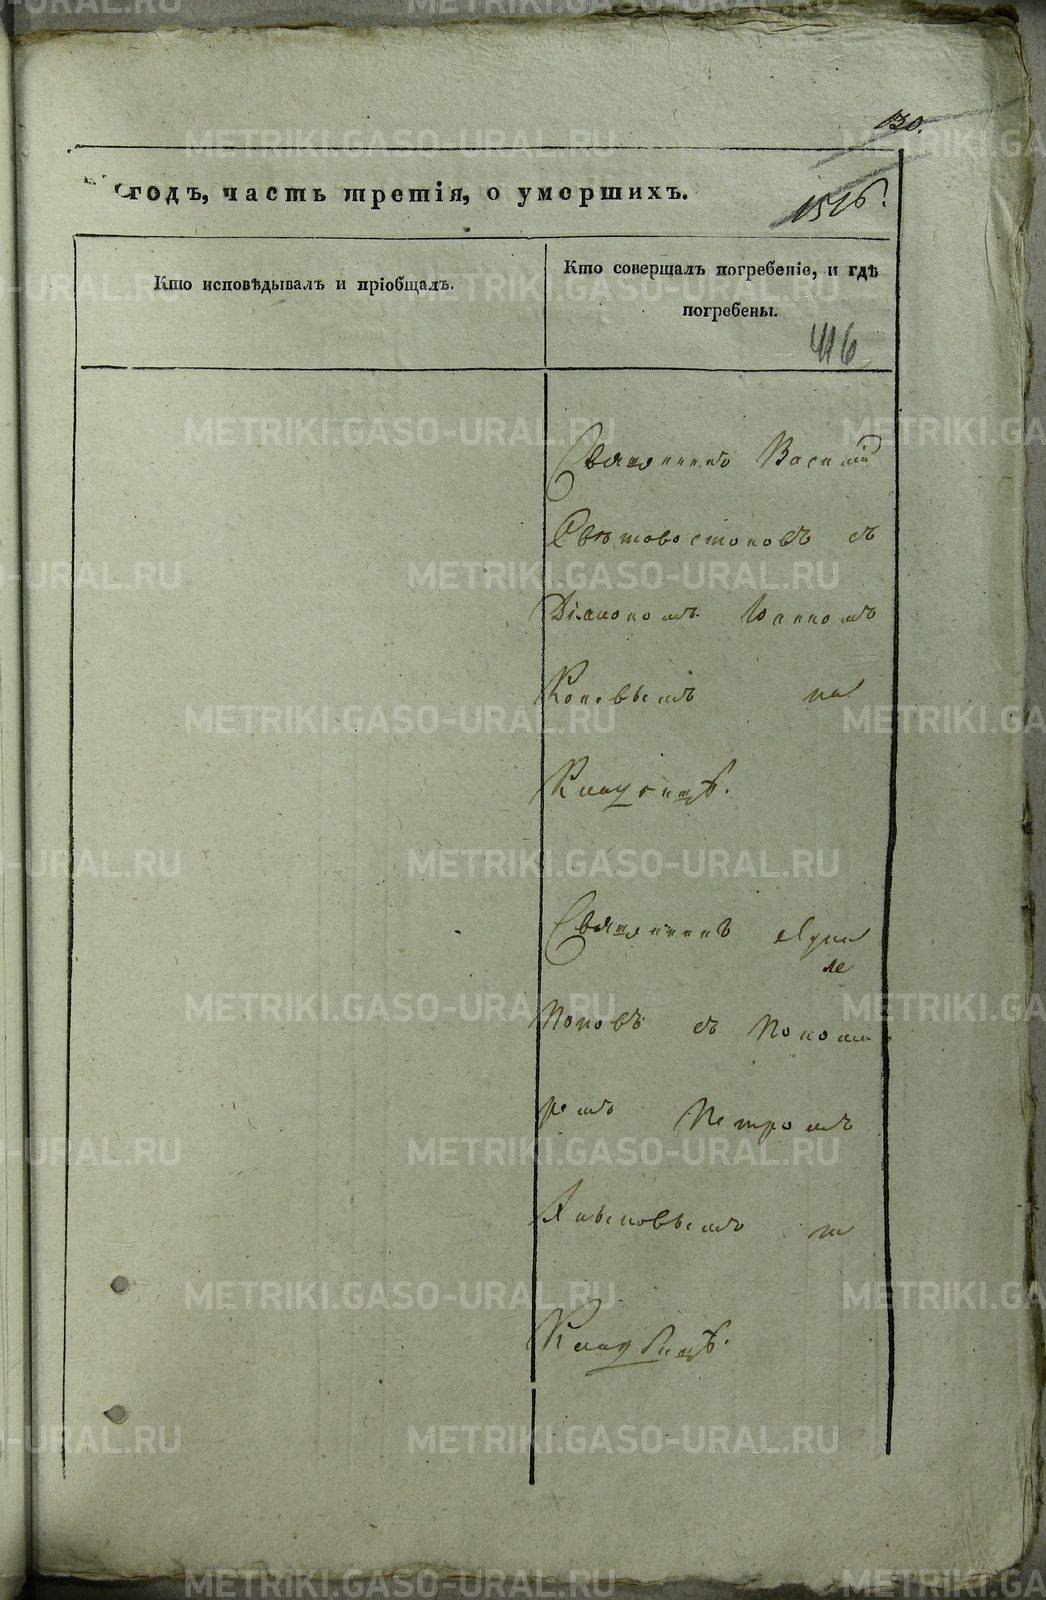 130.
годъ, часть третія, о умершихъ.
1516.
Кто исповѣдывалъ и пріобщалъ.
Кто совершалъ погребеніе, и гдѣ
погребены.
416
Священникъ Василій
Свѣтовостоковъ съ
Діакономъ Іоанномъ
на
Кладбищѣ.
Священникъ
Поповъ съ Понома
ремъ Петромъ
на
Кладбищѣ.
METRIKI.GASO-URAL.RU